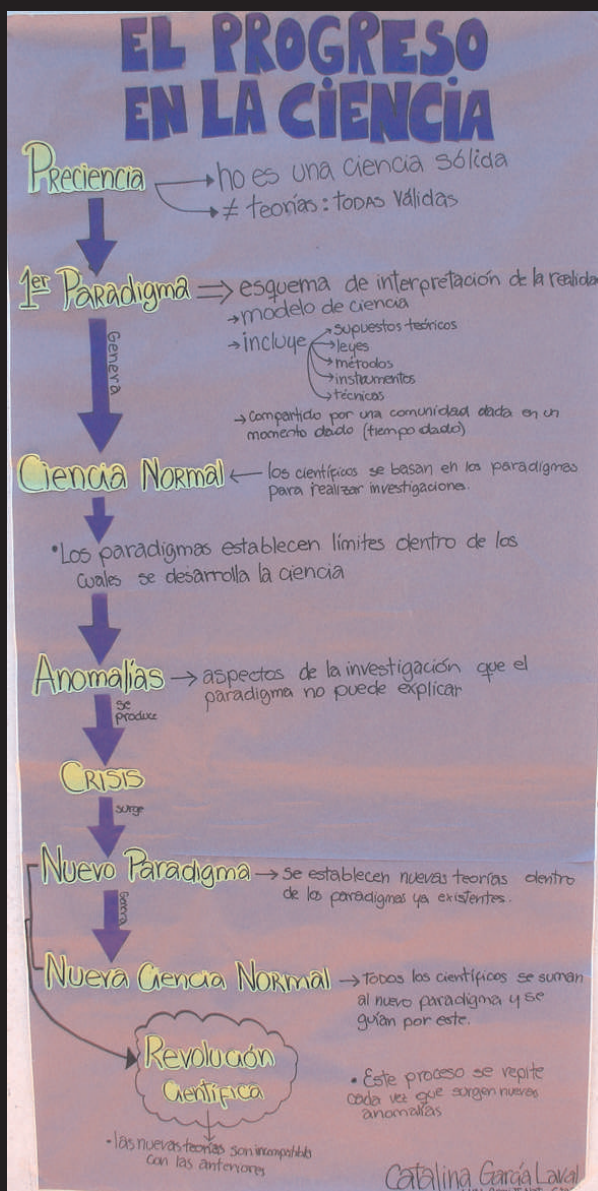 EL PROGRESO
EN LA CIENCIA
PRECIENCIA → no es una ciencia sólida
→ ≠ teorías: TODAS válidas
1er PARADIGMA ⇒ esquema de interpretación de la realidad
→ modelo de ciencia
→ incluye → supuestos teóricos
→ leyes
→ métodos
→ instrumentos
→ técnicas
Genera
→ compartido por una comunidad dada en un
momento dado (tiempo dado)
Ciencia NORMAL ← los científicos se basan en los paradigmas
para realizar investigaciones.
• Los paradigmas establecen límites dentro de los
cuales se desarrolla la ciencia
Anomalías → aspectos de la investigación que el
paradigma no puede explicar
se
produce
CRISIS
surge
Nuevo Paradigma → Se establecen nuevas teorías dentro
de los paradigmas ya existentes.
Genera
Nueva Ciencia NORMAL → Todos los científicos se suman
al nuevo paradigma y se
guían por este.
Revolución
Científica
• Este proceso se repite
cada vez que surgen nuevas
anomalías
• las nuevas teorías son incompatibles
con las anteriores
Catalina García Laval